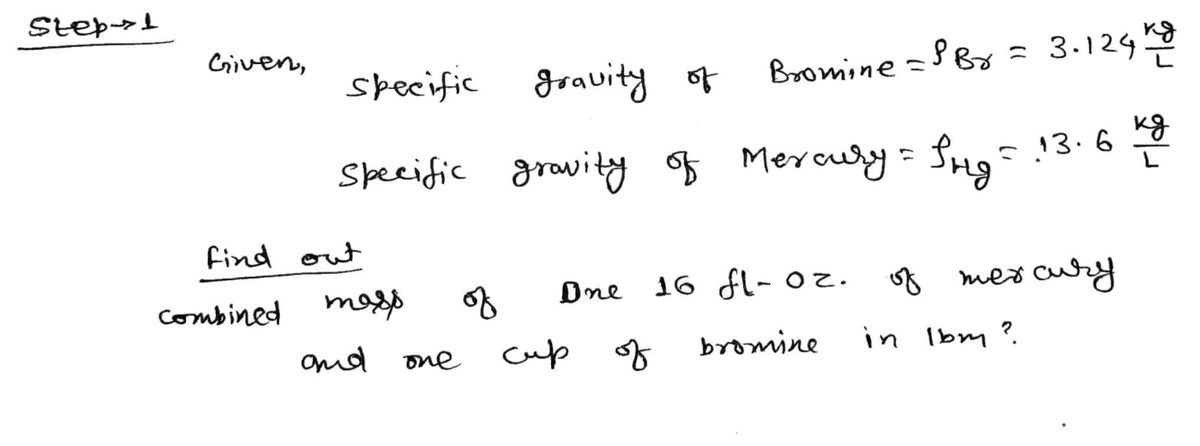 Step→1
Given,
Specific gravity of Bromine = ρBr = 3.124 kg/L
Specific gravity of Mercury = ρHg = 13.6 kg/L
find out
combined mass of One 16 fl-oz. of mercury
and one cup of bromine in lbm?